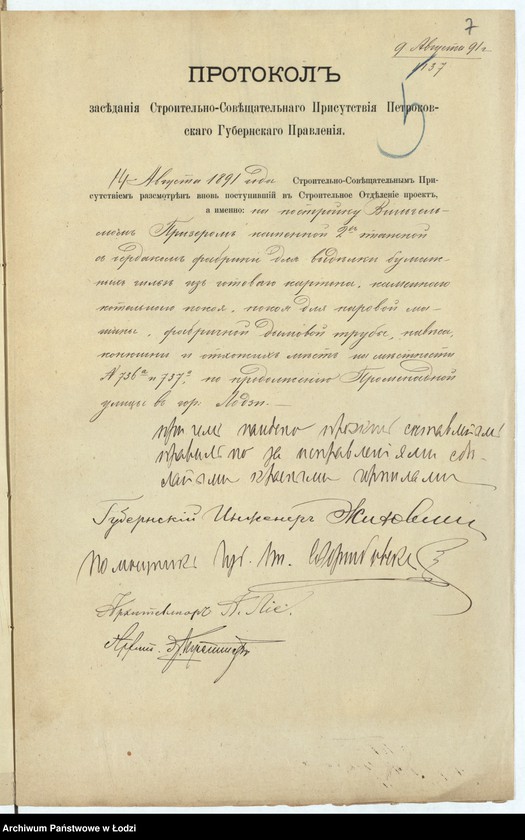 7
9 Августа 91 г
1137
5
ПРОТОКОЛЪ
засѣданія Строительно-Совѣщательнаго Присутствія Петроков-
скаго Губернскаго Правленія.
14 Августа 1891 года Строительно-Совѣщательнымъ При-
сутствіемъ разсмотрѣнъ вновь поступившій въ Строительное Отдѣленіе проектъ,
а именно: на постройку Вильгель-
момъ каменной 2хъ этажной
съ чердакомъ фабрики для выдѣлки бумаж-
ныхъ гильзъ изъ готоваго картона, каменнаго
котельнаго покоя, покоя для паровой ма-
шины, фабричной дымовой трубы, навѣса,
конюшни и отхожихъ мѣстъ на мѣстности
№ 736а и 737а, по продолженію Променадной
улицы въ гор. Лодзи.—
при чемъ найдено проектъ составленнымъ
правильно за исправленіями сдѣ-
ланными красными чернилами
Губернскій Инженеръ
Помощникъ Губ. Инж.
Архитекторъ
Архит.
Archiwum Państwowe w Łodzi